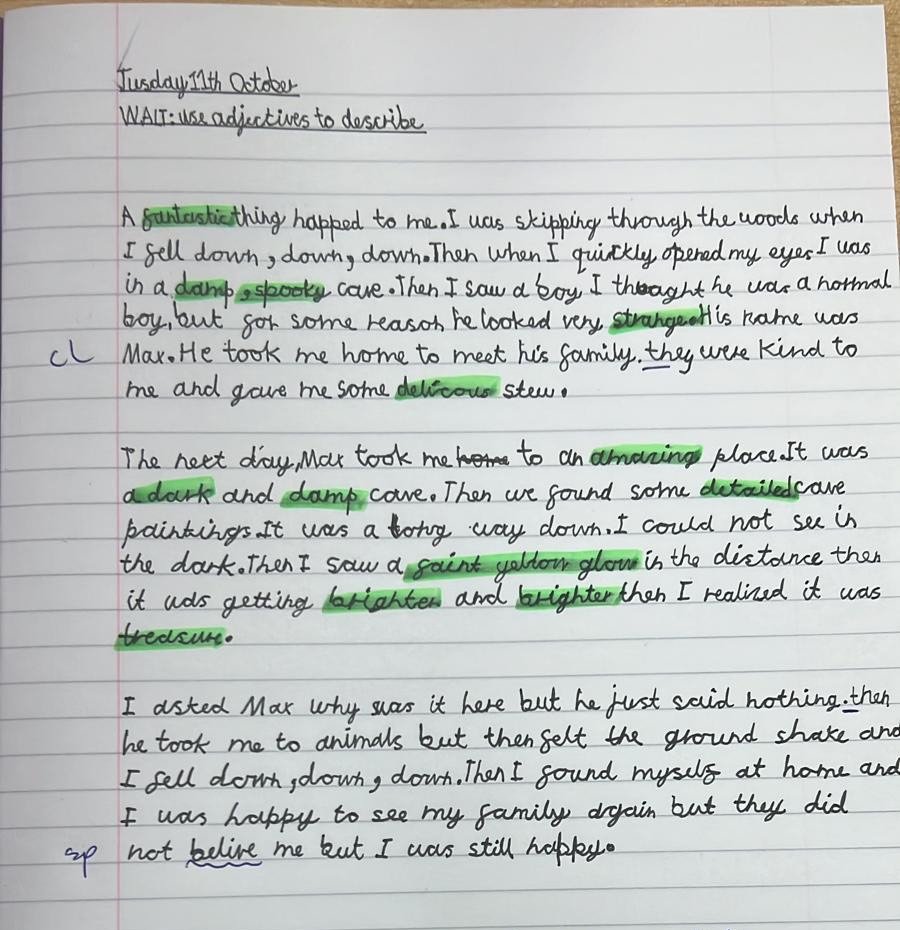 Tusday 11th October
WALT: use adjectives to describe
A fantastic thing happed to me. I was skipping through the woods when
I fell down, down, down. Then when I quickly opened my eyes I was
in a damp, spooky cave. Then I saw a boy I thought he was a normal
boy, but for some reason he looked very strange. His name was
CL Max. He took me home to meet his family. they were kind to
me and gave me some delicous stew.
The next day, Max took me home to an amazing place. It was
a dark and damp cave. Then we found some detailed cave
paintings. It was a long way down. I could not see in
the dark. Then I saw a faint yellow glow in the distance then
it was getting brighter and brighter then I realized it was
treasure.
I asked Max why was it here but he just said nothing. then
he took me to animals but then felt the ground shake and
I fell down, down, down. Then I found myself at home and
I was happy to see my family again but they did
sp not belive me but I was still happy.